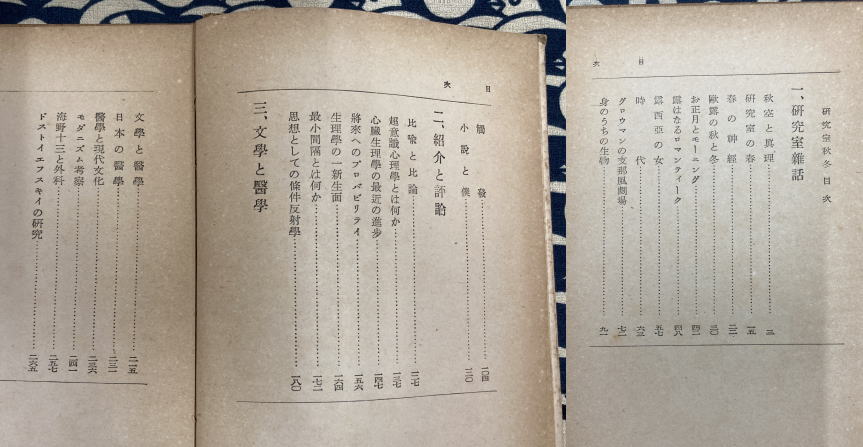 目次
研究室秋冬目次
一、研究室雜話
秋空と眞理 三
研究室の春 一五
春の神經 二二
歐露の秋と冬 三〇
お正月とモーニング 四二
露はなるロマンティーク 四八
露西亞の女 五七
時代 六三
グロウマンの支那風劇場 七二
身のうちの生物 九一
目次
觸發 一〇四
小說と僕 一二〇
二、紹介と評論
比喩と比論 一二七
超意識心理學とは何か 一三七
心臟生理學の最近の進步 一四七
將來へのプロバビリテイ 一五六
生理學の一新生面 一六四
最小間隔とは何か 一七二
思想としての條件反射學 一八〇
三、文學と醫學
文學と醫學 二一五
日本の醫學 二三一
醫學と現代文化 二三六
モダニズム考察 二四一
海野十三と外科 二五七
ドストイエフスキイの研究 二六五